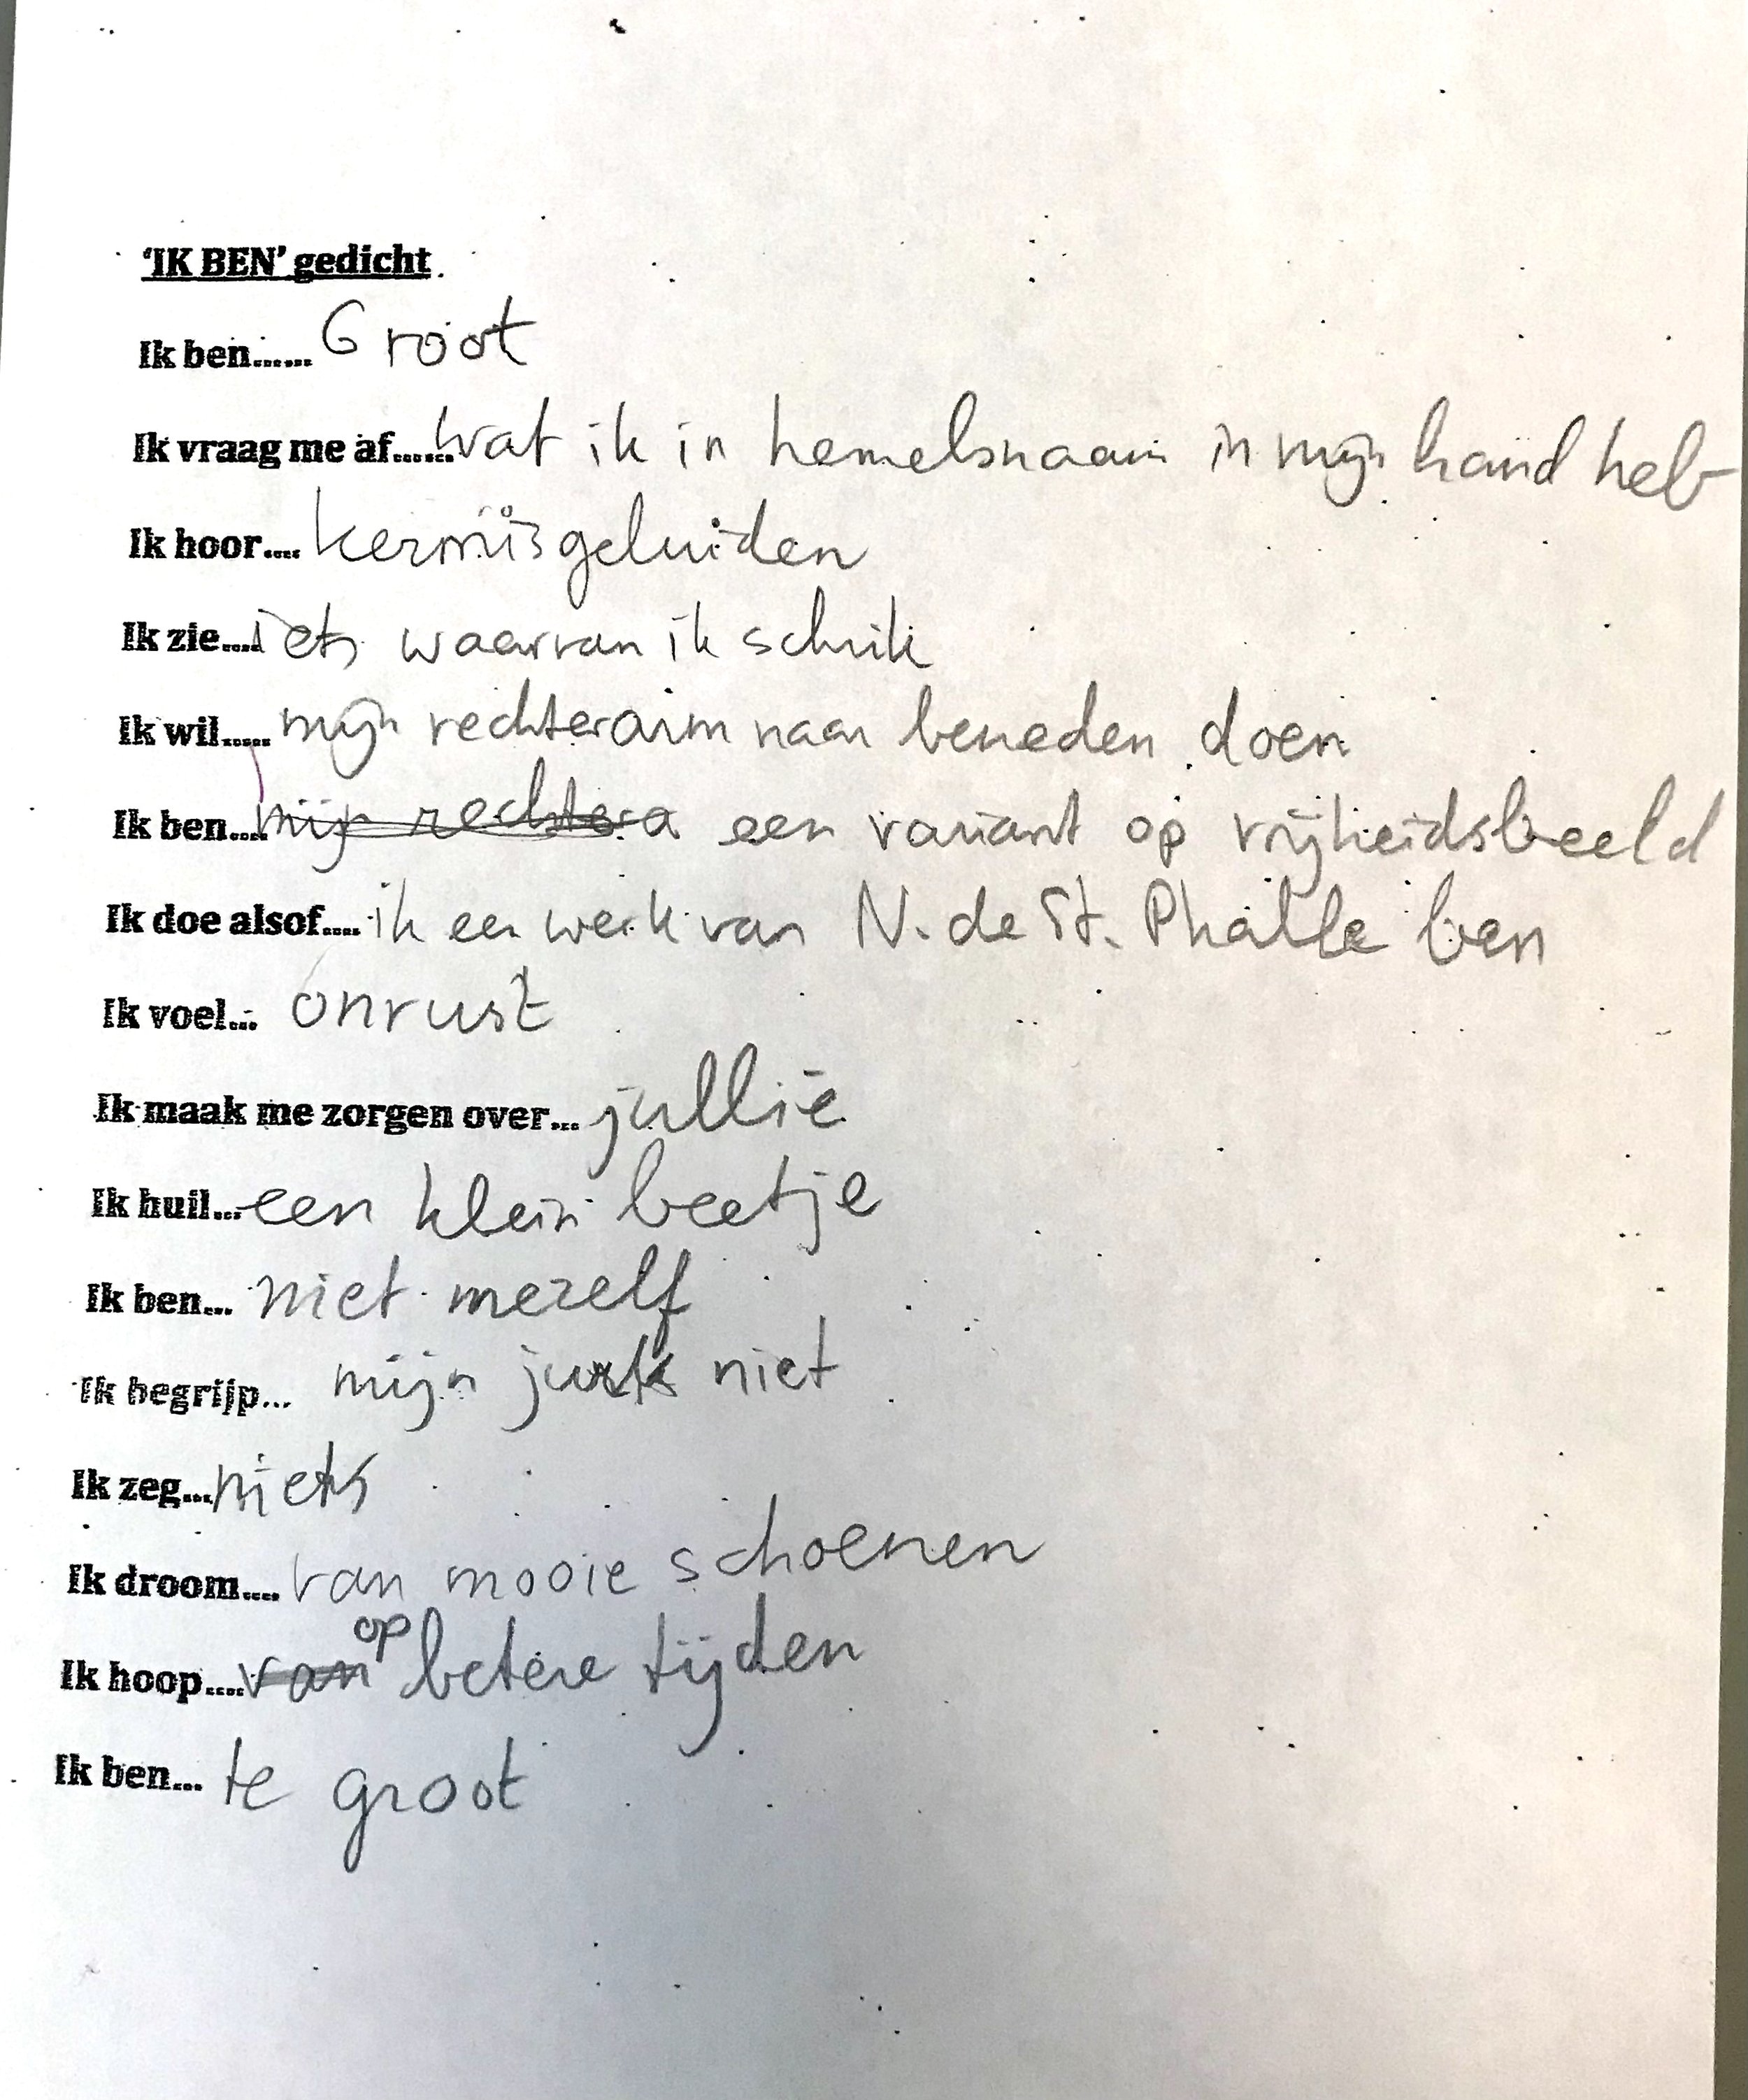 'IK BEN' gedicht
Ik ben...... Groot
Ik vraag me af...... Wat ik in hemelsnaam in mijn hand heb
Ik hoor.... kermisgeluiden
Ik zie.... iets waarvan ik schrik
Ik wil..... mijn rechterarm naar beneden doen
Ik ben.... mijn rechtera een variant op vrijheidsbeeld
Ik doe alsof.... ik een werk van N. de St. Phalle ben
Ik voel... onrust
Ik maak me zorgen over... jullie
Ik huil... een klein beetje
Ik ben... niet mezelf
Ik begrijp... mijn jurk niet
Ik zeg... niets
Ik droom.... van mooie schoenen
Ik hoop.... van op betere tijden
Ik ben... te groot